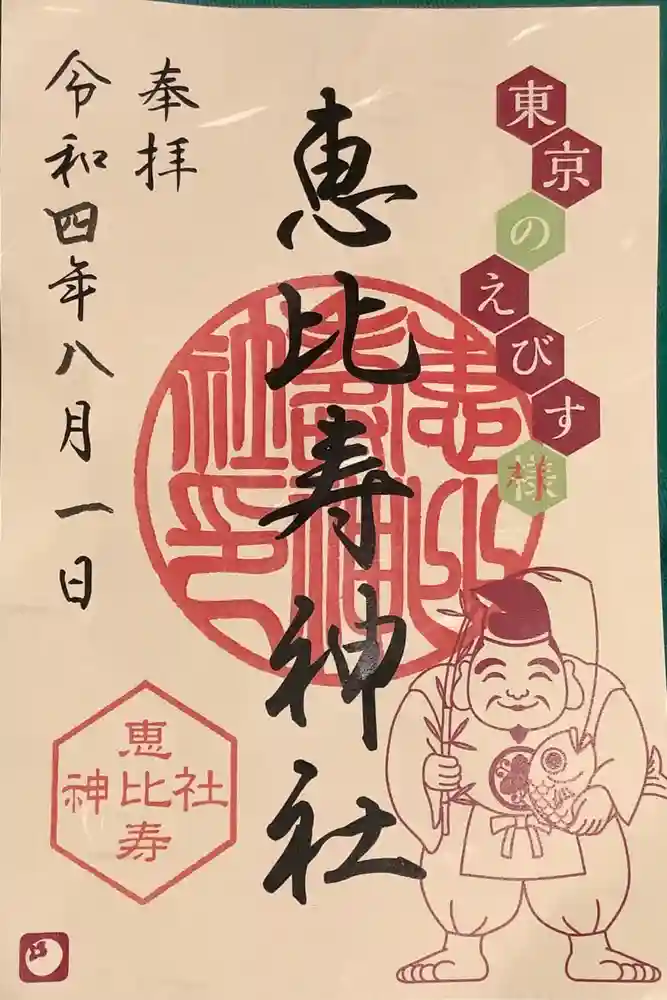 東京のえびす様
恵比寿神社
奉拝
令和四年八月一日
恵比寿神社印
恵比寿
神社